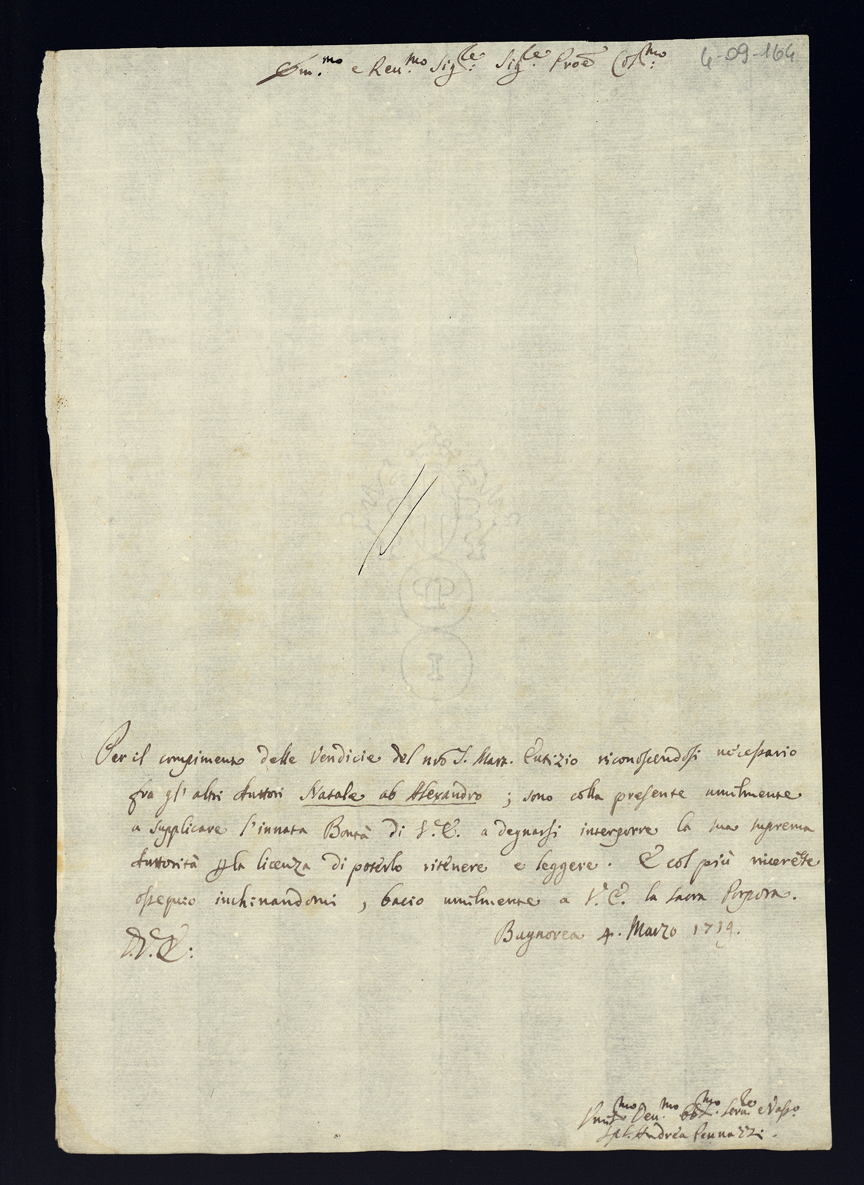 Em.mo e Reu.mo Sig.re Sig.re Prõe Col.mo
4-09-164
Per il compimento delle Vendicie del nrõ S. Mart. Eutizio riconoscendosi necessario
fra gl'altri Auttori Natale ab Alexandro ; sono colla presente umilmente
a supplicare l'innata Bontà di V. E. a degnarsi interporre la sua suprema
Auttorità la licenza di poterlo ritenere e leggere. E col più
ossequio inchinandomi, bacio umilmente a V. E. la sacra Porpora.
D. V. E:
Bagnorea 4. Marzo
Um.mo Deu.mo Obb.mo
Andrea Pennazzi.
P
I